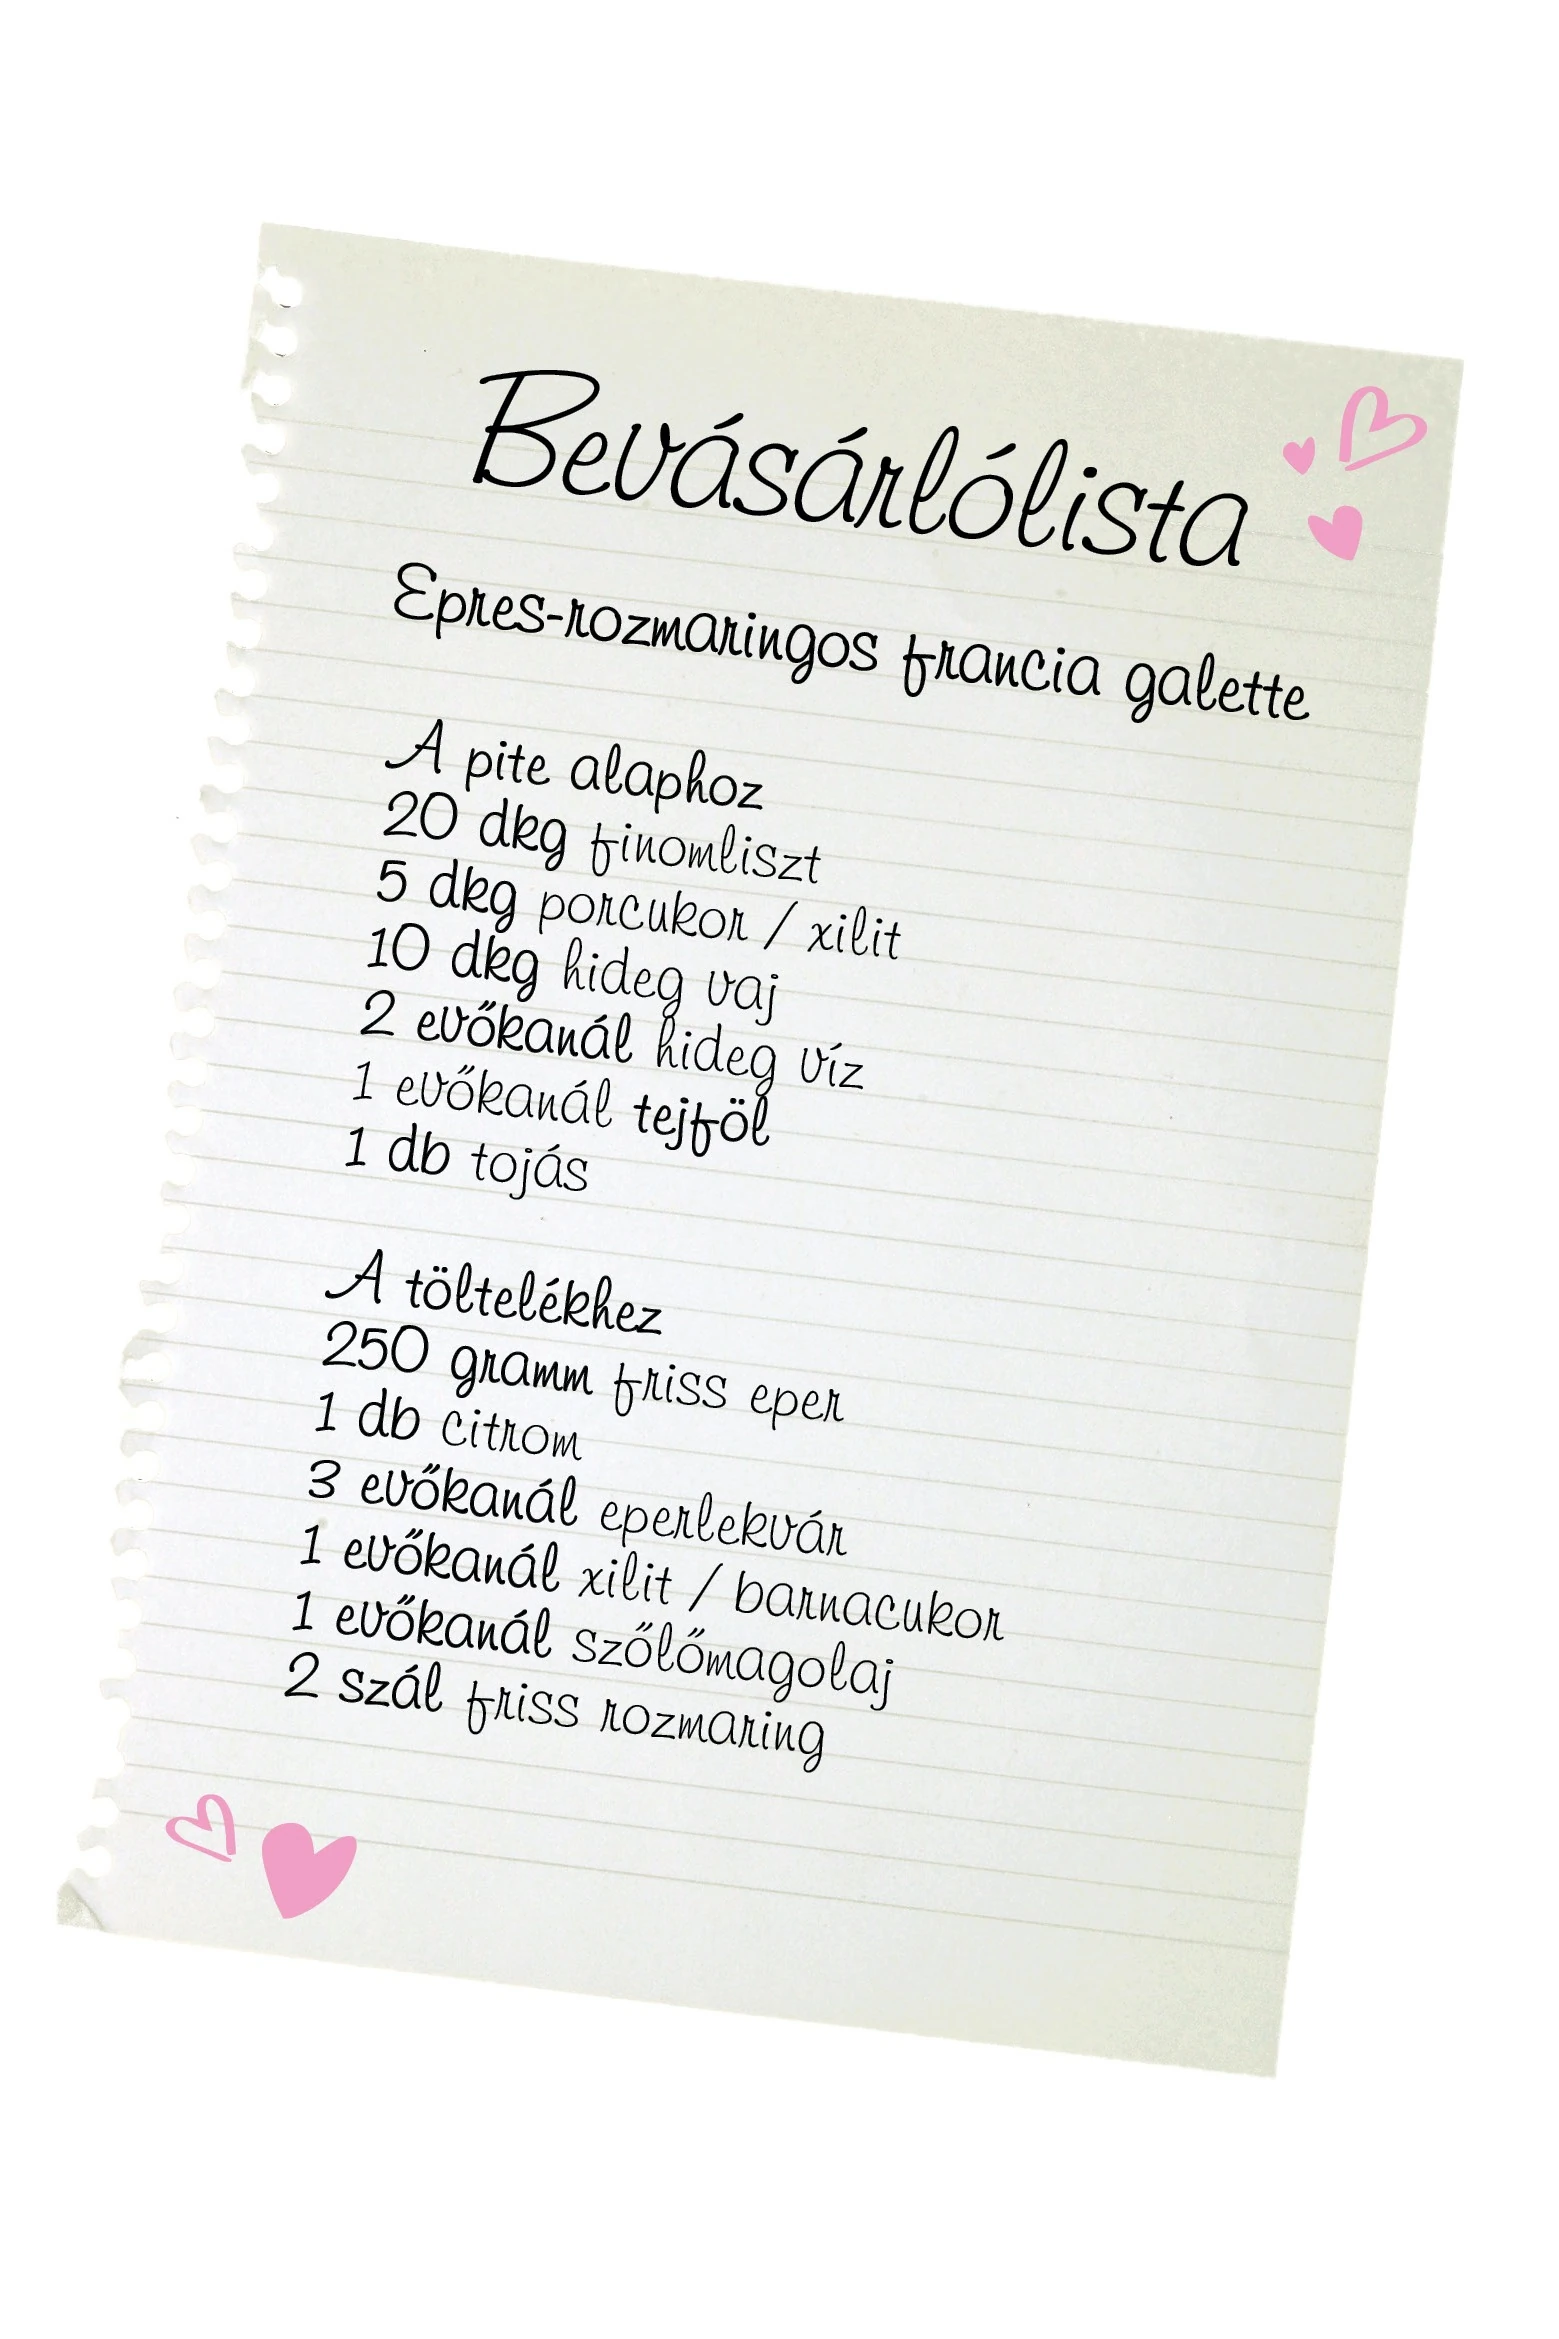 Bevásárlólista
Epres-rozmaringos francia galette
A pite alaphoz
20 dkg finomliszt
5 dkg porcukor / xilit
10 dkg hideg vaj
2 evőkanál hideg víz
1 evőkanál tejföl
1 db tojás
A töltelékhez
250 gramm friss eper
1 db citrom
3 evőkanál eperlekvár
1 evőkanál xilit / barnacukor
1 evőkanál szőlőmagolaj
2 szál friss rozmaring